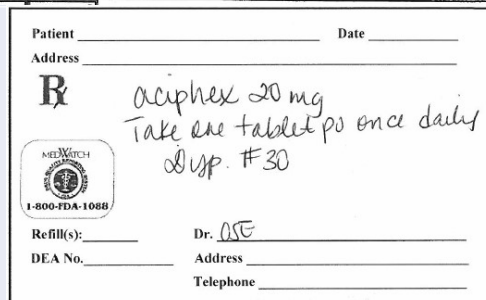 Patient Date
Address
Rx aciphex 20 mg
Take one tablet po once daily
Disp. #30
MEDWATCH
1-800-FDA-1088
Refill(s): Dr. OSE
DEA No. Address
Telephone